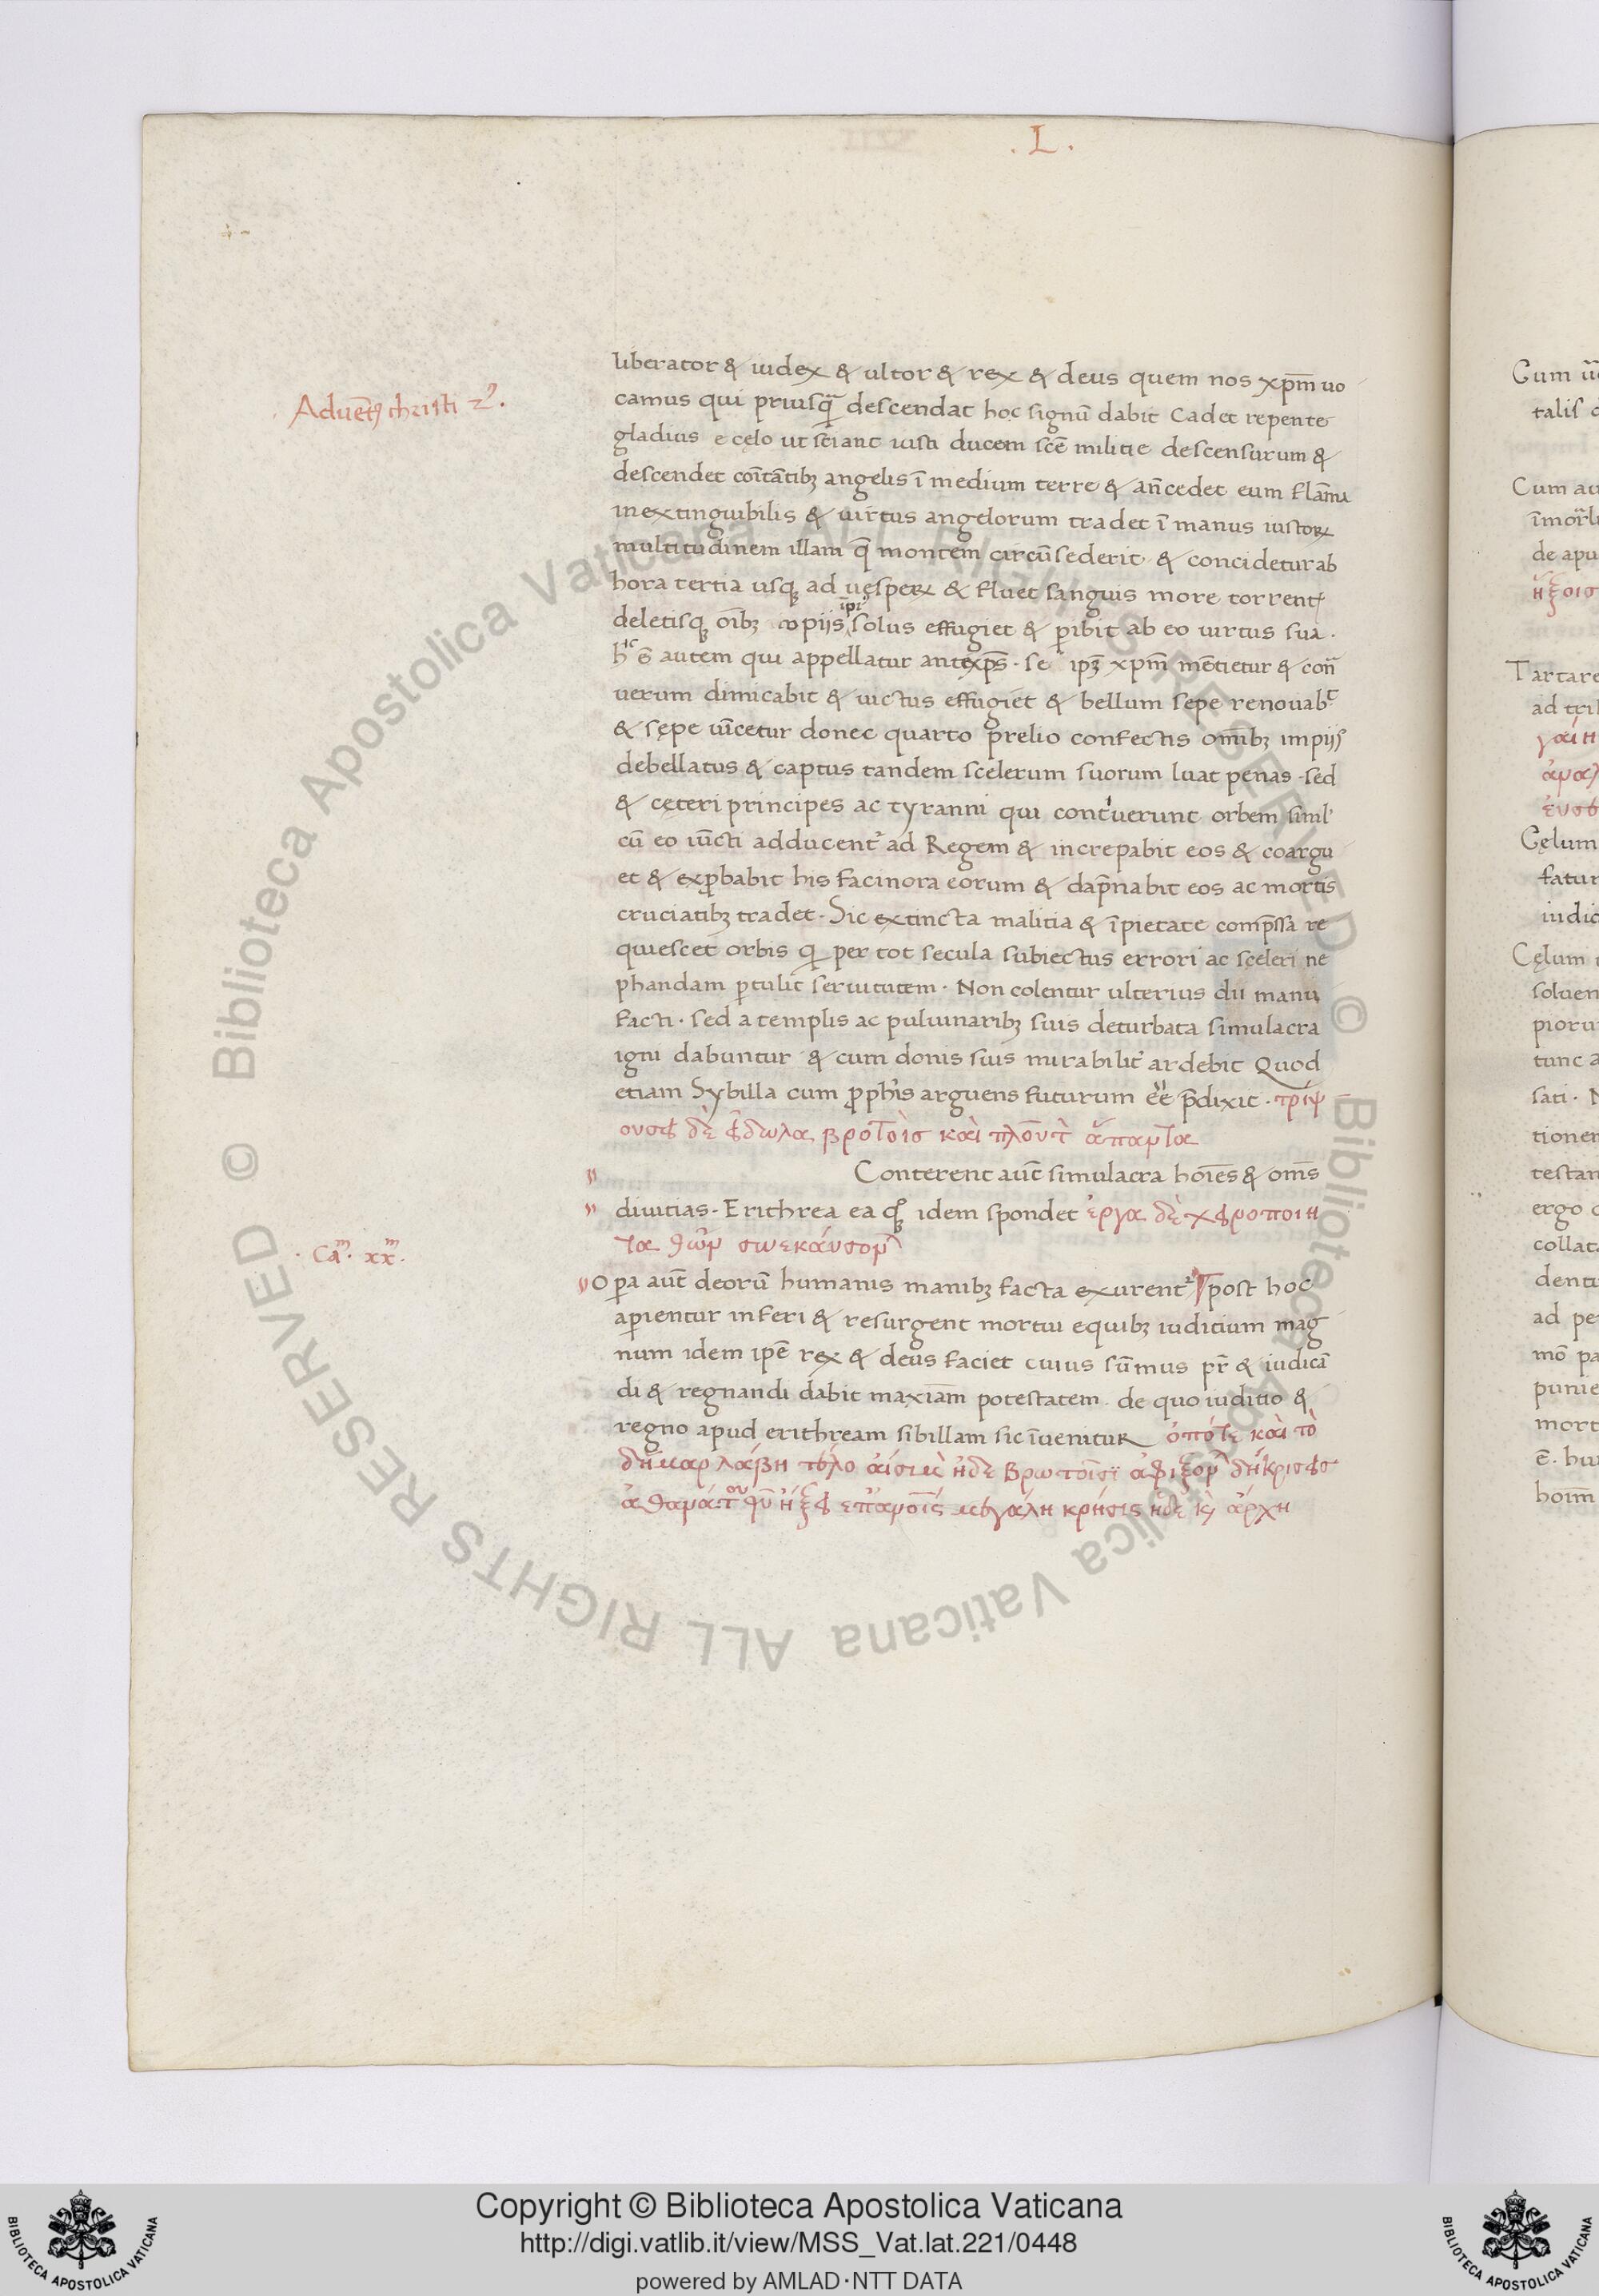 . L .
liberator & iudex & ultor & rex & deus quem nos xp̄m uo
Aduēt9 christi 2⁹.
camus qui priusq̄ descendat hoc signū dabit Cadet repente
gladius e cęlo ut sciant iusti ducem scē militie descensurum &
descendet comitātibꝫ angelis ī medium terre & an̄cedet eum flāma
inextinguibilis & uirtus angelorum tradet ī manus iustoꝝ
multitudinem illam q̄ montem circūsederit & concidetur ab
hora tertia usqꝫ ad uesperꝝ & fluet sanguis more torrent
deletisqꝫ oībꝫ copiis ipi⁹ solus effugiet & ꝑibit ab eo uirtus sua .
hic ē autem qui appellatur antexp̄s . se ipꝫ xp̄m mētietur &
uerum dimicabit & uictus effugiet & bellum sepe renouabt
& sępe uīcetur donec quarto prelio confectis omībꝫ impiis
debellatus & captus tandem scelerum suorum luat penas . sed
& cęteri principes ac tyranni qui contriuerunt orbem simil'
cū eo iūcti adducent ad Regem & increpabit eos & coargu
et & exprobabit his facinora eorum & dāpnabit eos ac mortis
cruciatibꝫ tradet . Sic extincta malitia & īpietate comp̄ssa re
quiescet orbis qi per tot secula subiectus errori ac sceleri ne
phandam ꝑtulit seruitutem . Non colentur ulterius dii manu
facti . sed a templis ac puluinaribꝫ suis deturbata simulacra
igni dabuntur & cum donis suis mirabilit ardebit Quod
etiam Sybilla cum ꝓph̄is arguens futurum ēē p̄dixit . τρίψ
ουσει δὲ ειδωλα βροτοὶσ καὶ πλοῦτ ἅπαντα
Conterent aut̄ simulacra hoīes & om̄s
diuitias . Erithrea ea qꝫ idem spondet ἐργα δὲ χειροποιη
Ca^m . xx^m .
τα θεῶν
Opa aut̄ deorū humanis manibꝫ facta exurent post hoc
aꝑientur inferi & resurgent mortui equibꝫ iuditium mag
num idem ipē rex & deus faciet cuius sūmus pr̄ & iudicā
di & regnandi dabit maxiām potestatem . de quo iuditio &
regno apud erithream sibillam sic īuenituꝝ ὁπότε καὶ τὸ
μεγάλη κρήσις ἀρχη
Copyright © Biblioteca Apostolica Vaticana
http://digi.vatlib.it/view/MSS_Vat.lat.221/0448
powered by AMLAD·NTT DATA